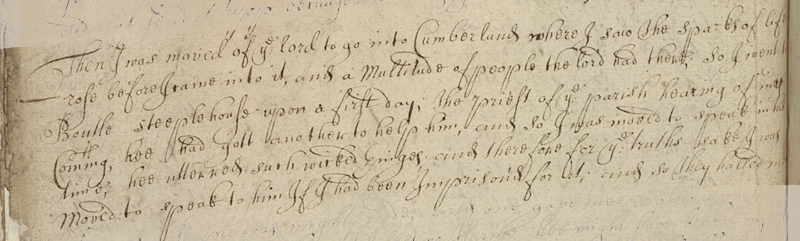 Then I was moved of yͤ lord to go into Cumberland where I saw the sparks of life
rose before I came into it, and a Multitude of people the lord had there: so I went to
Boutle steeplehouse upon a first day; the priest of yͤ parish hearing of my
Comming, hee had gott another to help him, and so I was moved to speak in his
time; hee uttered such wicked things and therefore for yͤ truths sake I was
moved to speak to him If I had been Imprisond for it; and so they halled me